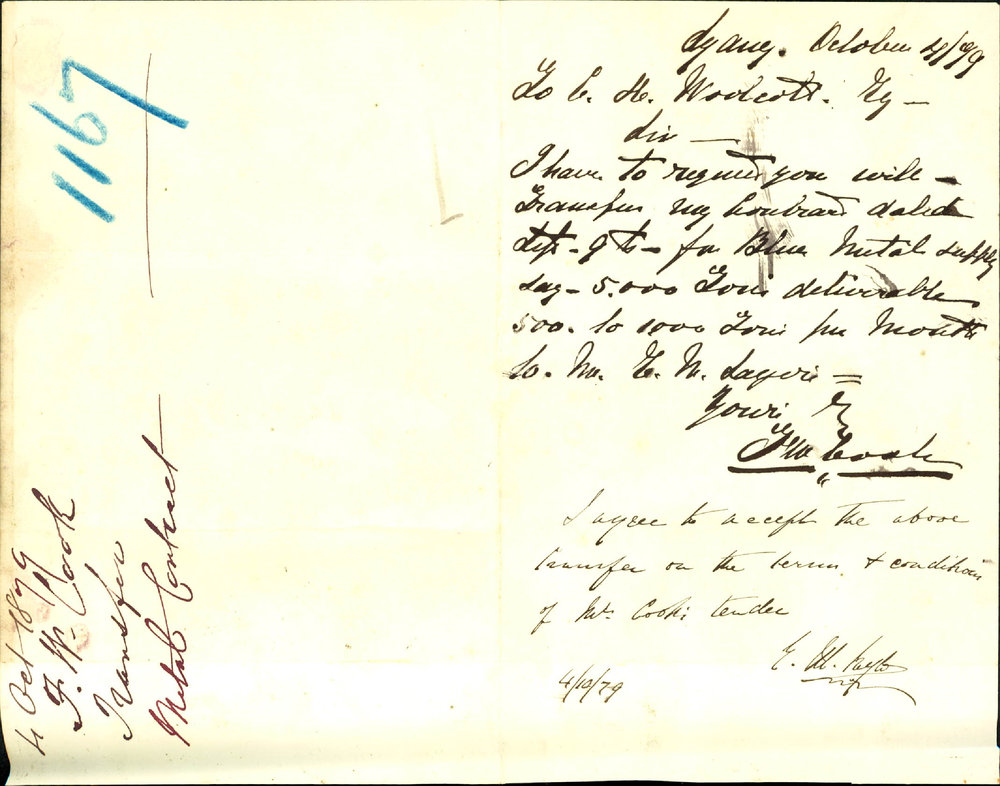 1167
4 Oct 1879
F. W. Cook
Transfer
Metal Contract
Sydney. October 4/79
To C. H. Woolcott. Esq —
Sir —
I have to request you will —
Transfer my Contract dated
Sept - 9th - for Blue Metal supply
say - 5.000 Tons deliverable
500. to 1000 Tons per Month
to. Mr. E. M. Sayers =
Yours
F W Cook
I agree to accept the above
transfer on the terms & conditions
of Mr Cooks tender
E. M. Sayers
4/10/79